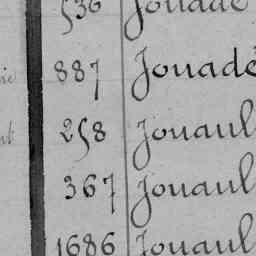 536 Jouade
887 Jouadé
258 Jouaul
367 Jouaul
1686 Jouaul